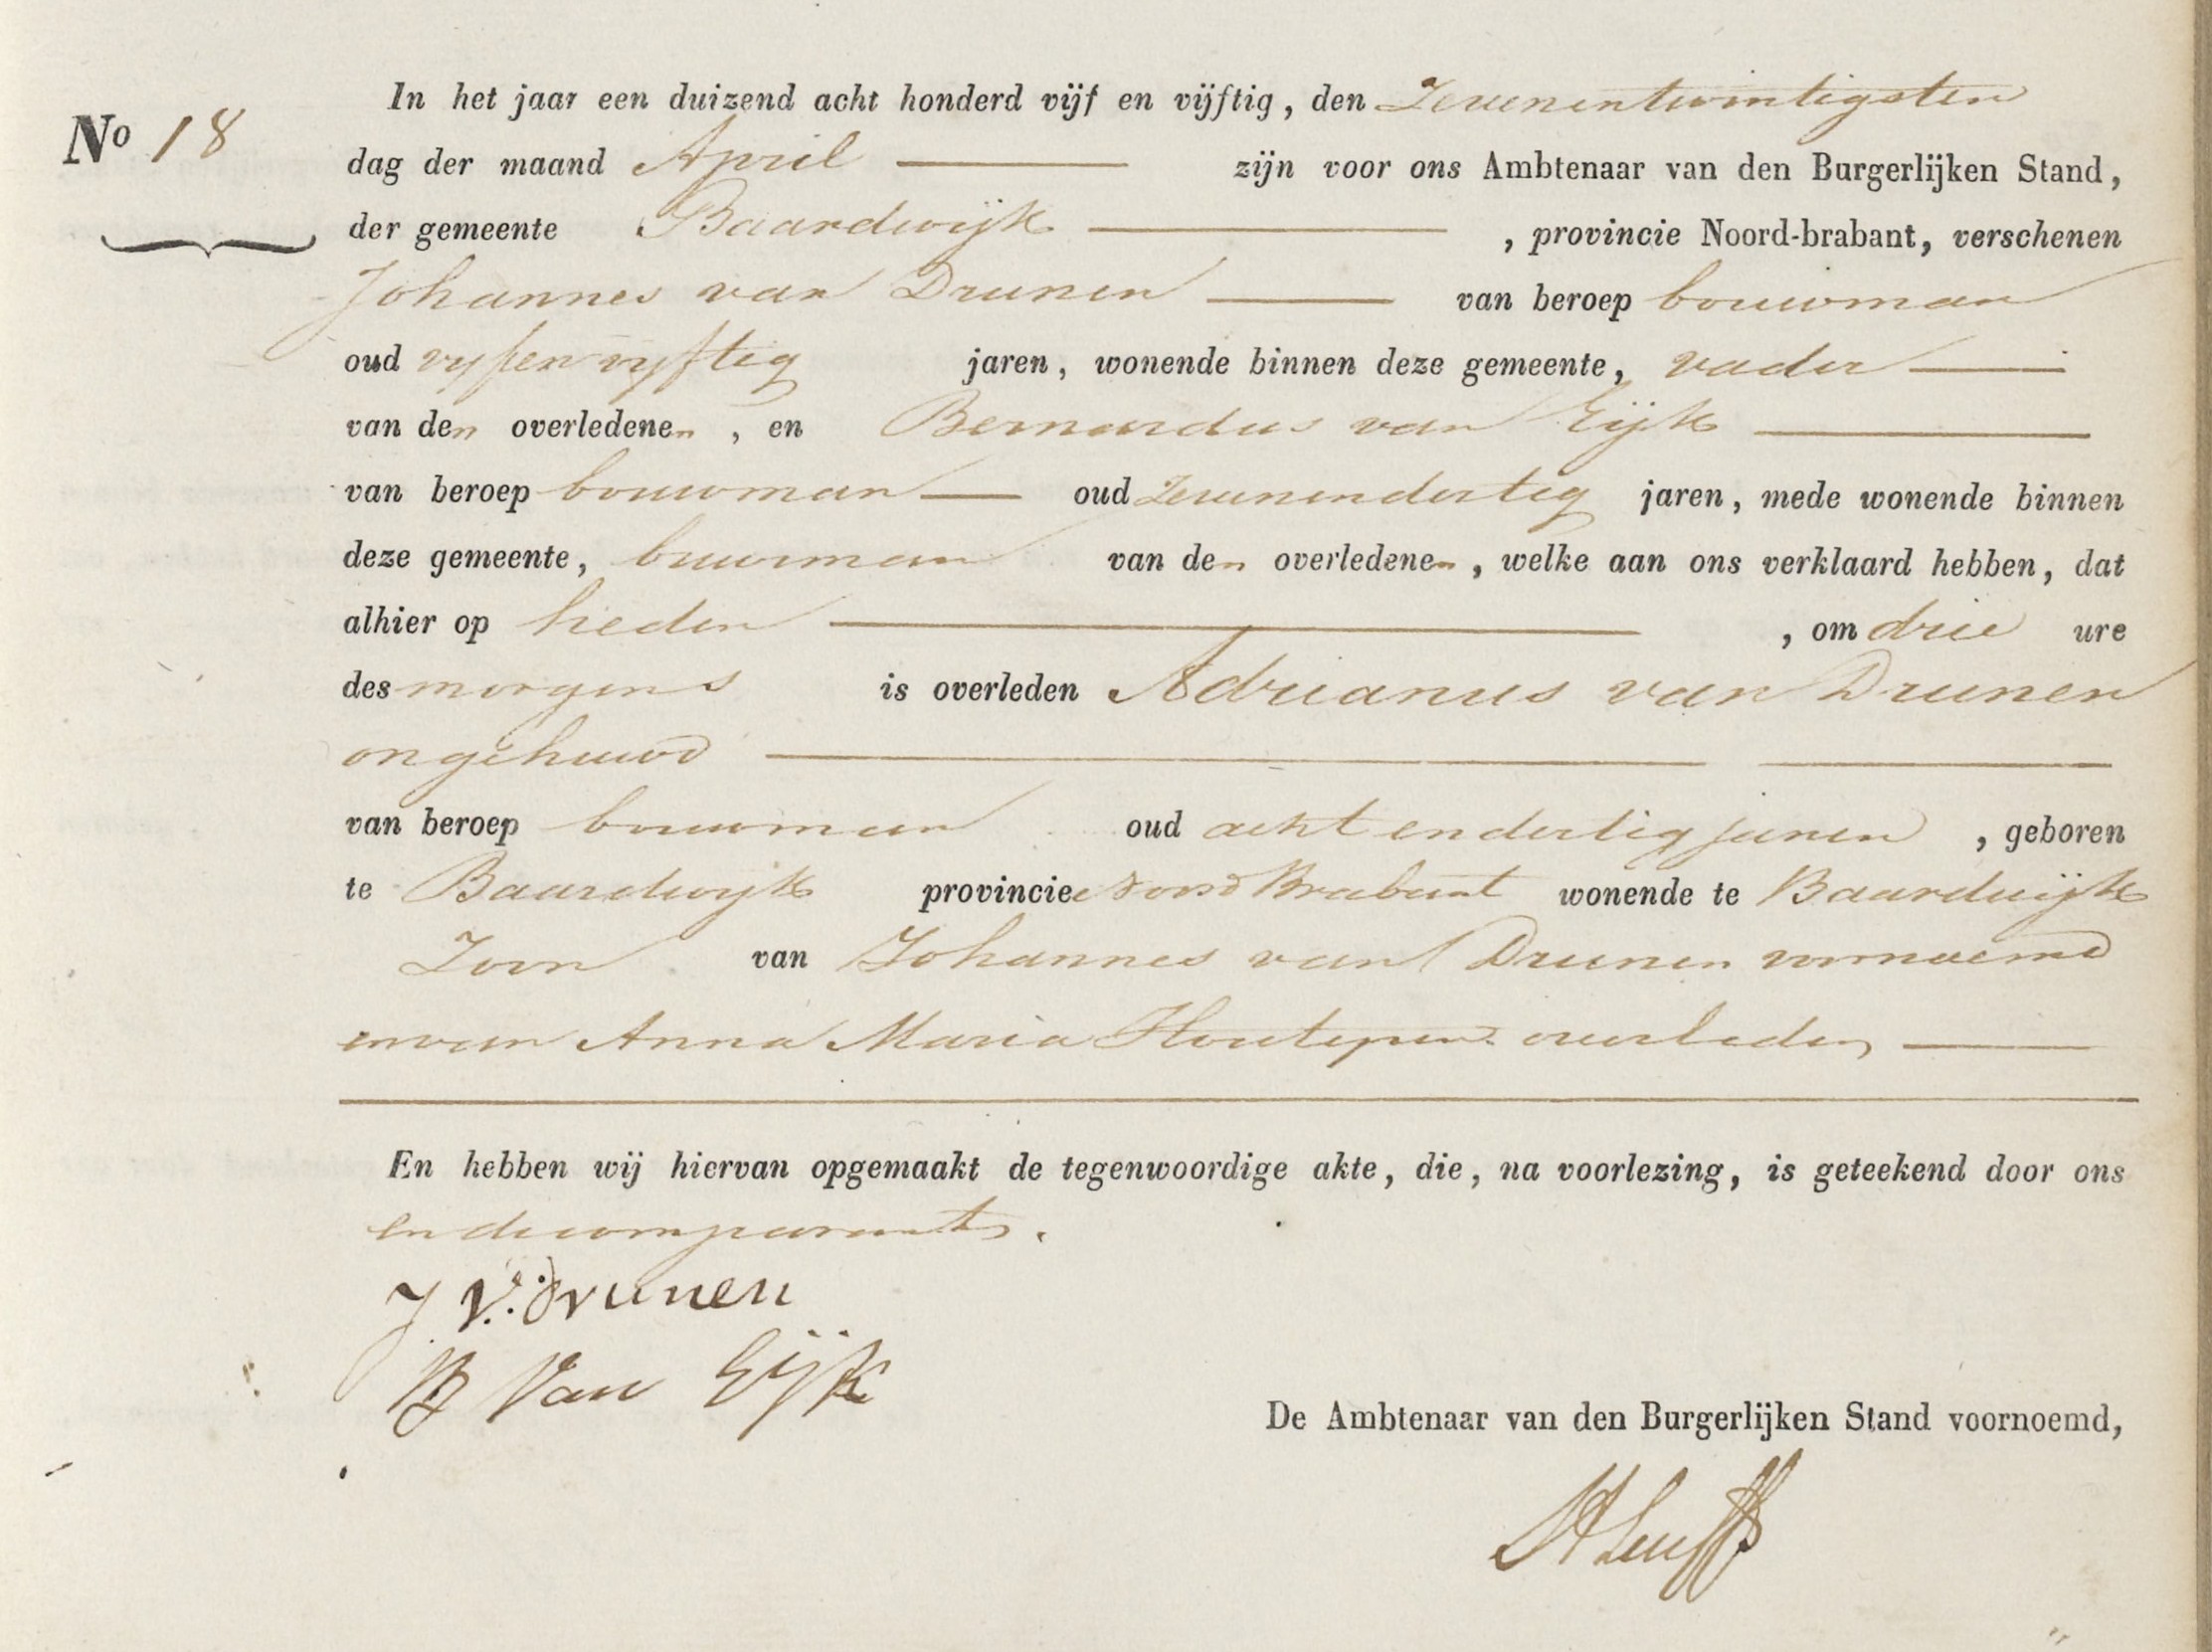 In het jaar een duizend acht honderd vijf en vijftig, den Zevenentwintigsten
No 18
dag der maand April zijn voor ons Ambtenaar van den Burgerlijken Stand,
der gemeente Baardwijk , provincie Noord-brabant, verschenen
Johannes van Drunen van beroep bouwman
oud vyfenvyftig jaren, wonende binnen deze gemeente, vader
van den overledenen, en Bernardus van Eijk
van beroep bouwman oud Zevenendertig jaren, mede wonende binnen
deze gemeente, buurman van den overledenen, welke aan ons verklaard hebben, dat
alhier op heden , om drie ure
des morgens is overleden Adrianus van Drunen
ongehuwd
van beroep bouwman oud acht en dertig jaren , geboren
te Baardwyk provincie Noord Brabant wonende te Baardwijk
Zoon van Johannes van Drunen voornoemd
en van Anna Maria Houtepen overleden
En hebben wij hiervan opgemaakt de tegenwoordige akte, die, na voorlezing, is geteekend door ons
en de comparants.
J V. Drunen
B Van Eijk
De Ambtenaar van den Burgerlijken Stand voornoemd,